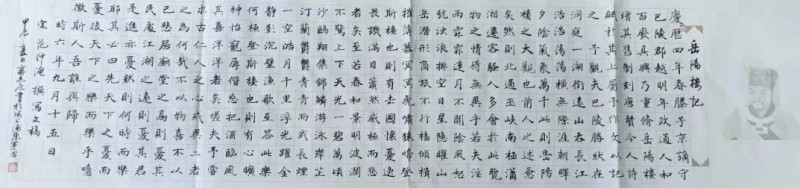 岳陽樓記
慶曆四年春滕子京謫守
巴陵郡越明年政通人和
百廢具興乃重修岳陽樓
增其舊制刻唐賢今人詩
賦於其上屬予作文以記
之予觀夫巴陵勝狀在
洞庭一湖銜遠山吞長江
浩浩湯湯橫無際涯朝暉
夕陰氣象萬千此則岳陽
樓之大觀也前人之述備
矣然則北通巫峽南極瀟
湘遷客騷人多會於此覽
物之情得無異乎若夫淫
雨霏霏連月不開陰風怒
號濁浪排空日星隱曜山
岳潛形商旅不行檣傾楫
摧薄暮冥冥虎嘯猿啼登
斯樓也則有去國懷憂讒
畏譏滿目蕭然感極而悲
者矣至若春和景明波瀾
不驚上下天光一碧萬頃
沙鷗翔集錦鱗游泳岸芷
汀蘭郁郁青青而或長煙
一空皓月千里浮光躍金
靜影沉璧漁歌互答此樂
何極登斯樓也則有心曠
神怡寵辱偕忘把酒臨風
其喜洋洋者矣嗟夫予嘗
求古仁人之心或異二者
之為何哉不以物喜不以
己悲居廟堂之高則憂其
民處江湖之遠則憂其君
是進亦憂然則何時而樂
耶其必曰先天下之憂而
憂後天下之樂而樂乎噫
微斯人吾誰與歸
時六年九月十五日
宋范仲淹撰寫文稿